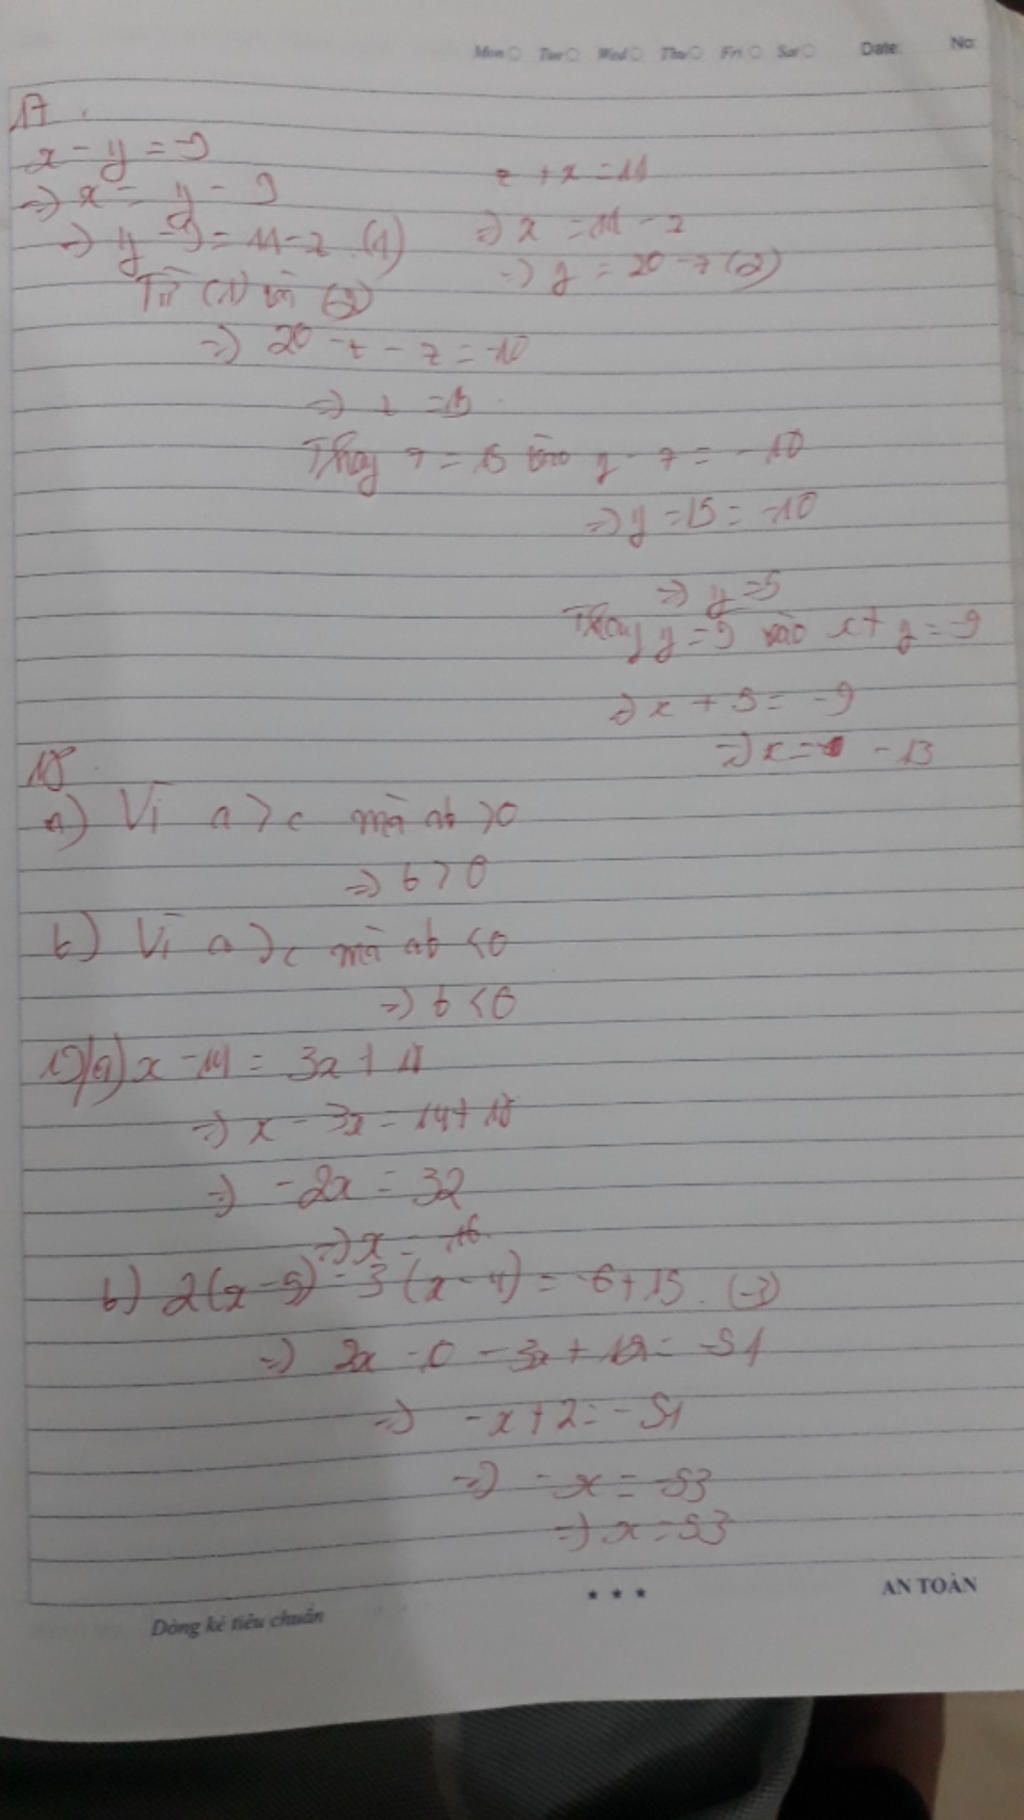 Mon Tue Wed Thu Fri Sat Date: No:
17.
x - y = -9
=> x = y - 9
=> y - 9 = 11 - z (1)
z + x = 11
=> x = 11 - z
=> y = 20 - z (2)
Từ (1) và (2)
=> 20 - z - z = -10
=> z = 15
Thay z = 15 vào y - z = -10
=> y - 15 = -10
=> y = 5
Thay y = 5 vào x + y = -9
=> x + 5 = -9
=> x = - 13
18.
a) Vì a > c mà ab > 0
=> b > 0
b) Vì a > c mà ab < 0
=> b < 0
19/a) x - 14 = 3x + 18
=> x - 3x = 14 + 18
=> -2x = 32
=> x = -16
b) 2(x - 5) - 3(x - 4) = -6 + 15 . (-3)
=> 2x - 10 - 3x + 12 = -51
=> -x + 2 = -51
=> -x = -53
=> x = 53
* * *
AN TOÀN
Dòng kẻ tiêu chuẩn